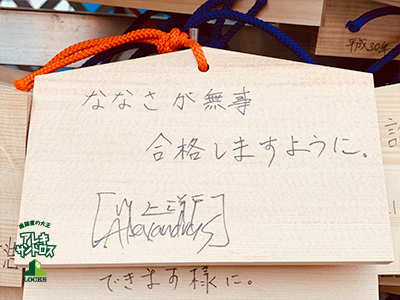 平成30年
ななさが無事
合格しますように。
[川上洋平
Alexandros]
できます様に。
鍵開け屋の大王
アレキサンドロス
LOCKS